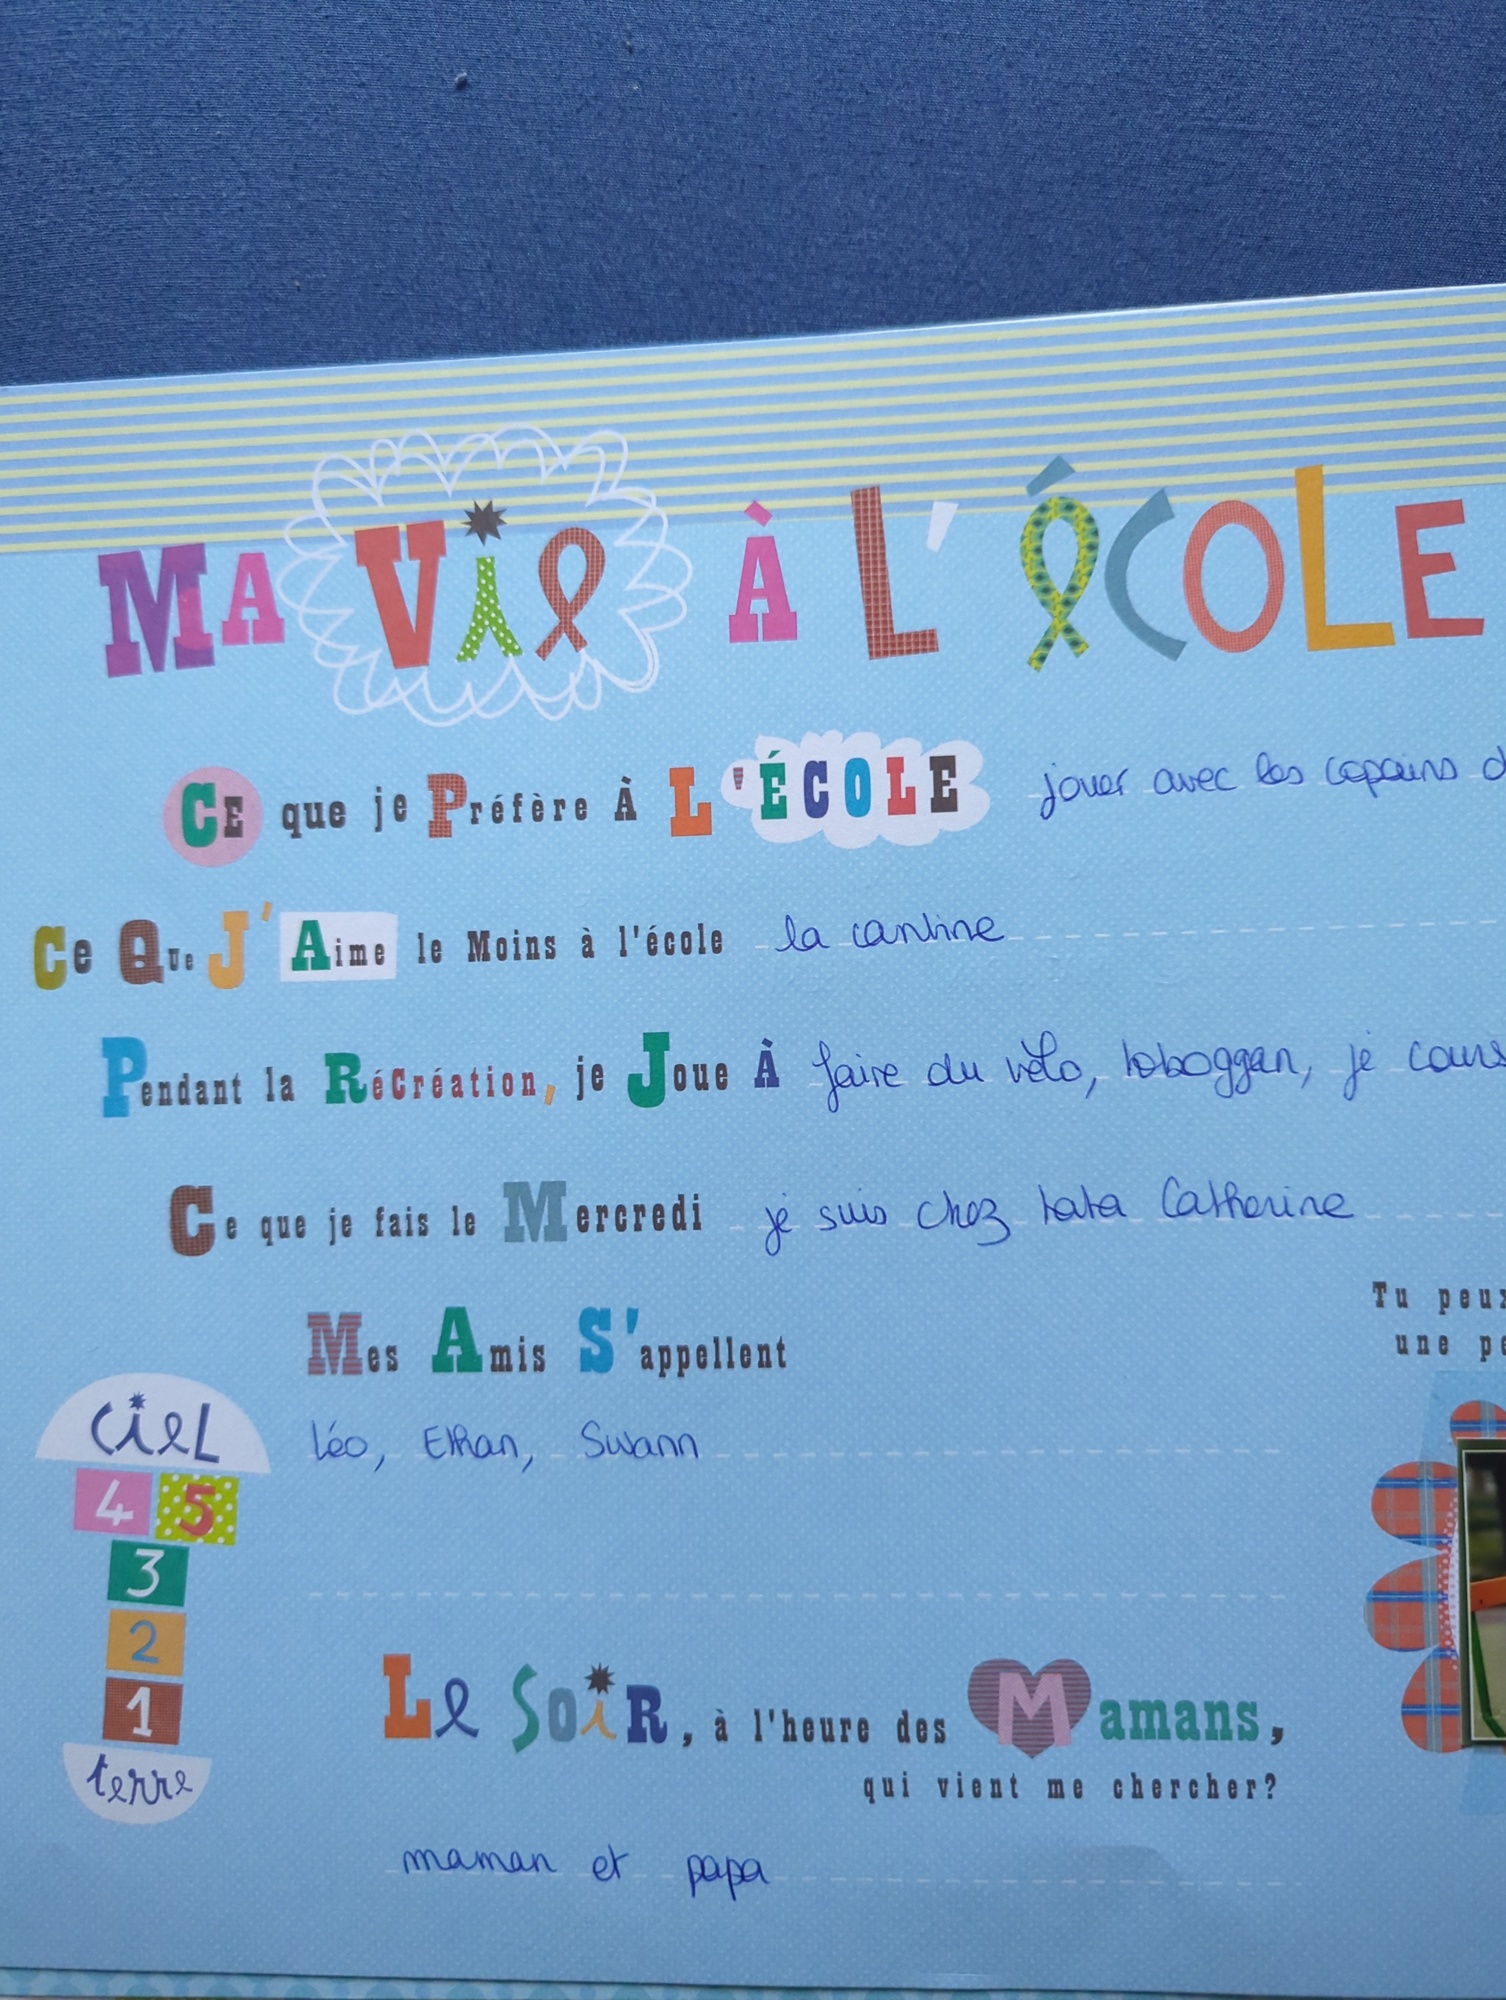 MA VIE À L'ÉCOLE
CE que je Préfère À L'ÉCOLE jouer avec les copains
Ce Que J'Aime le Moins à l'école la cantine
Pendant la Récréation, je Joue À faire du vélo, toboggan, je cours
Ce que je fais le Mercredi je suis chez tata Catherine
Tu peux
une
Mes Amis S'appellent
Léo, Ethan, Swann
ciel
4 5
3
2
1
terre
Le Soir, à l'heure des Mamans,
qui vient me chercher?
maman et papa